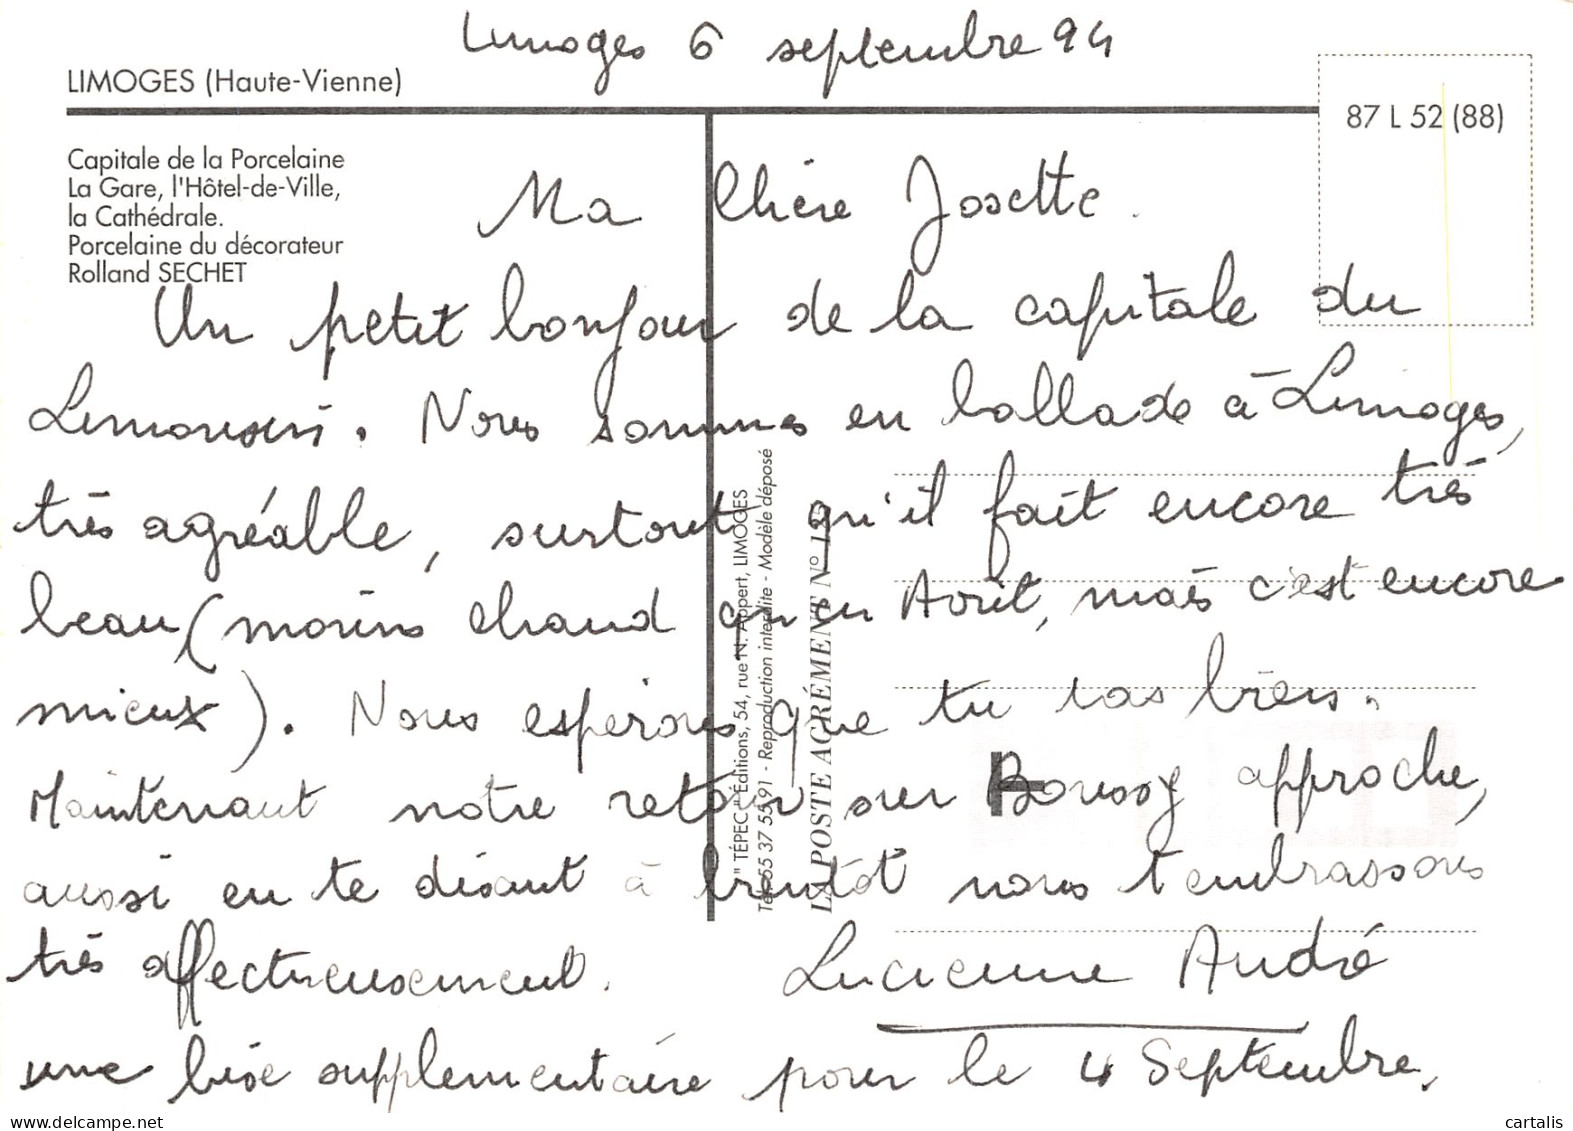 Limoges 6 septembre 94
LIMOGES (Haute-Vienne)
87 L 52 (88)
Capitale de la Porcelaine
La Gare, l'Hôtel-de-Ville,
la Cathédrale.
Porcelaine du décorateur
Rolland SECHET
Ma Chère Josette.
Un petit bonjour de la capitale du
Limousin. Nous sommes en ballade à Limoges,
très agréable, surtout qu'il fait encore très
beau (moins chaud qu'en Août, mais c'est encore
mieux). Nous espérons que tu vas bien.
Maintenant notre retour sur Boussy approche,
aussi en te disant à bientôt nous t'embrassons
très affectueusement. Lucienne André
une bise supplémentaire pour le 4 Septembre.
"TÉPEC" Éditions, 54, rue N. Appert, LIMOGES
Tél. 55 37 55 91 - Reproduction interdite - Modèle déposé
LA POSTE AGRÉMENT N°
delcampe.net
cartalis